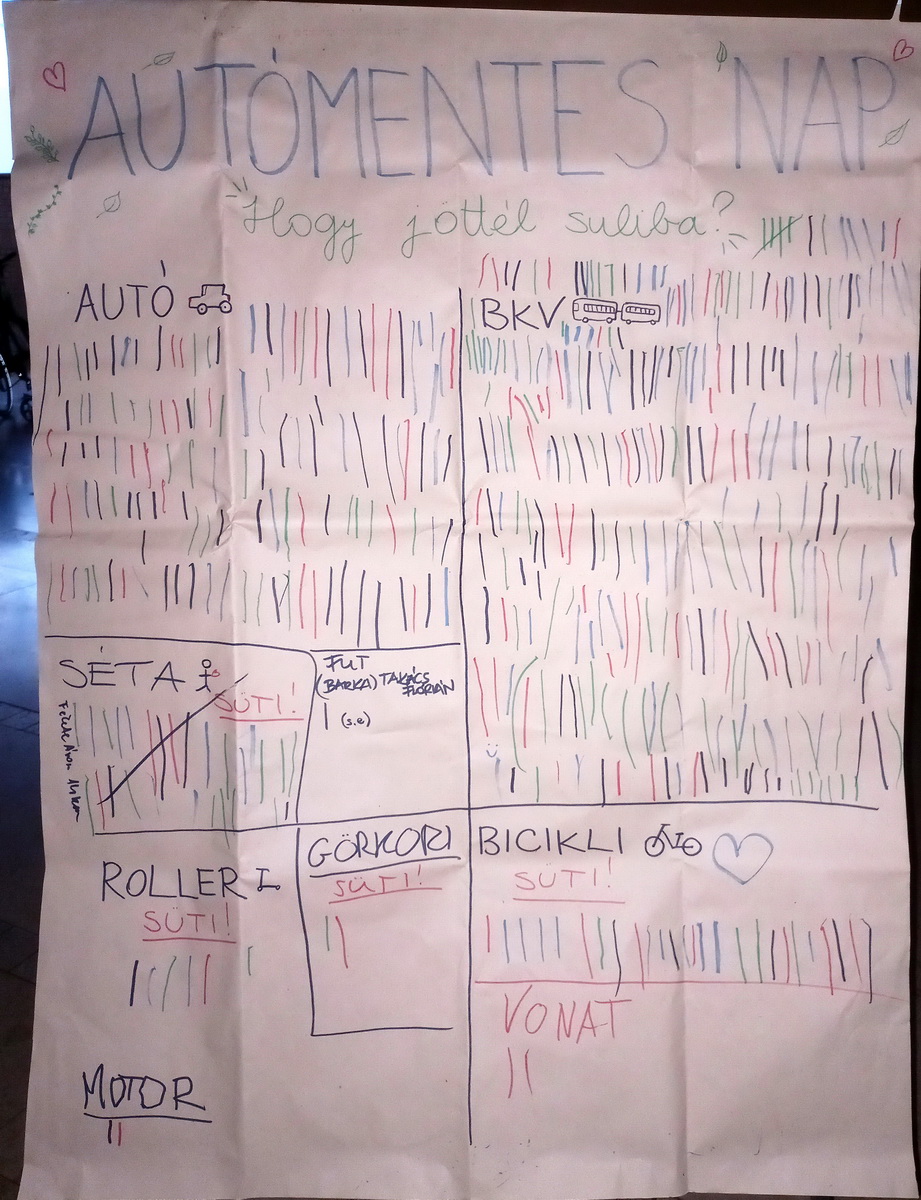 AUTÓMENTES NAP
Hogy jöttél suliba?
AUTÓ
BKV
SÉTA
SÜTI!
FUT
(BARKA) TAKÁCS FLÓRIÁN
(s.e)
ROLLER
SÜTI!
GÖRKORI
SÜTI!
BICIKLI
SÜTI!
VONAT
MOTOR